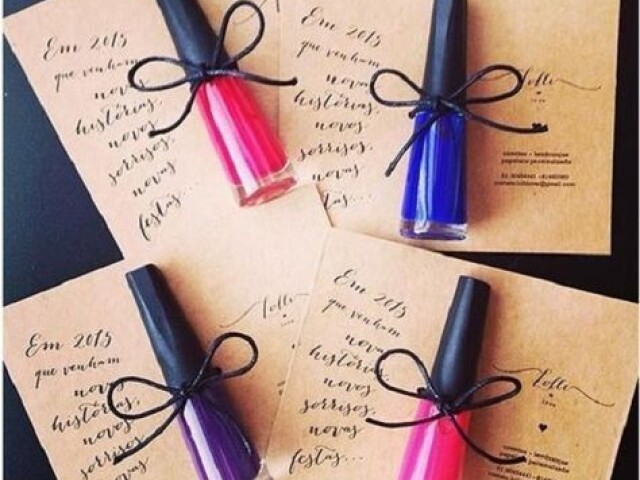 Em 2015
que venham
novas
histórias,
novos
sorrisos,
novas
festas...
Em 2015
que venham
novas
histórias,
novos
sorrisos,
novas
fe
Lolli
love
convites + lembranças
papelaria personalizada
Em 2015
que venham
novas
histórias,
novos
sorrisos
novas
Lolli
Em 2015
que venham
novas
histórias,
novos
sorrisos,
novas
festas...
Lolli
love
convites + lembranças
papelaria personalizada